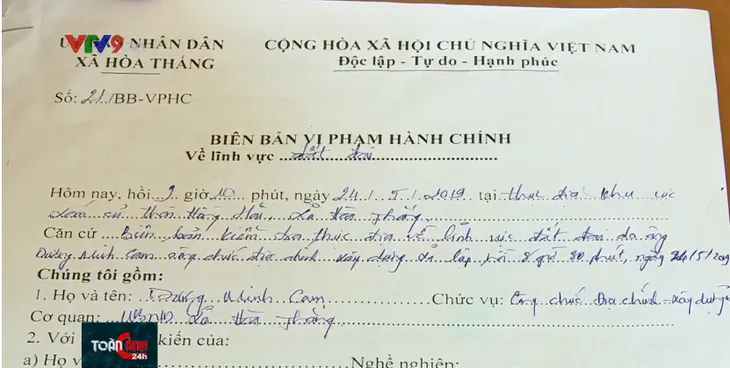 VTV9
NHÂN DÂN CỘNG HÒA XÃ HỘI CHỦ NGHĨA VIỆT NAM
XÃ HÒA THẮNG Độc lập - Tự do - Hạnh phúc
Số: 21/BB-VPHC
BIÊN BẢN VI PHẠM HÀNH CHÍNH
Về lĩnh vực đất đai
Hôm nay, hồi 9 giờ 10 phút, ngày 24/5/2019 tại thực địa khu vực
thôn Hồng xã Hòa Thắng
Căn cứ Biên bản kiểm tra thực địa về lĩnh vực đất đai do ông
Dương Minh Cam công chức địa chính xây dựng xã lập hồi 8 giờ 30 phút, ngày 24/5/2019
Chúng tôi gồm:
1. Họ và tên: Dương Minh Cam Chức vụ: Công chức Địa chính - xây dựng
Cơ quan: UBND xã Hòa Thắng
2. Với kiến của:
TOÀN CẢNH 24h
a) Họ Nghề nghiệp: